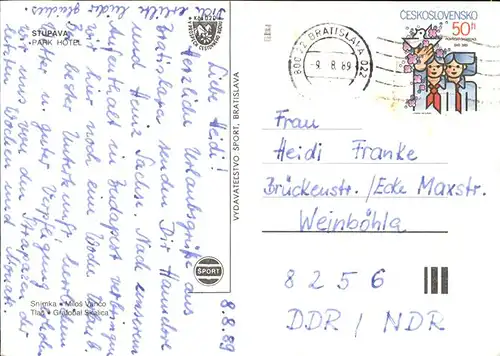 STUPAVA
PARK HOTEL
8.8.89
Liebe Heidi!
Herzliche Urlaubsgrüße aus
Bratislava senden Dir Hannelore
und Heinz Sachse. Nach unserem
Aufenthalt in Budapest verbringen
wir hier noch eine Woche Urlaub.
Bei bester Unterkunft
und guter Verpflegung
wir uns von den Strapazen der
letzten Wochen und Monate.
Leider
Snímka • Miloš Vančo
Tlač • Grafobal Skalica
VYDAVATEĽSTVO ŠPORT, BRATISLAVA
ŠPORT
800 22 BRATISLAVA 022
-9.8.89
ČESKOSLOVENSKO
50 h
Frau
Heidi Franke
Brückenstr./Ecke Maxstr.
Weinböhla
8256
DDR / NDR